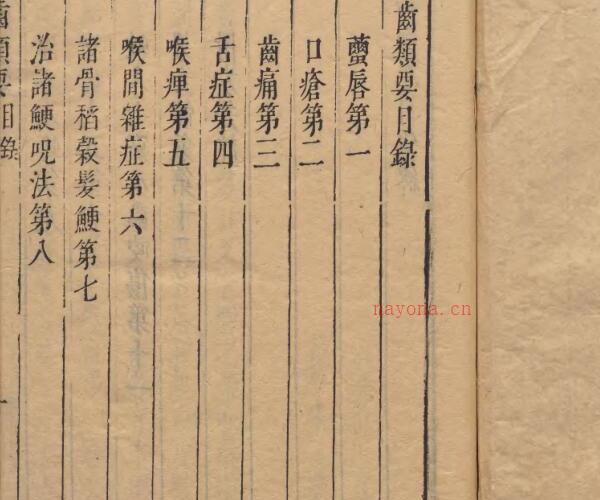 齒類要目錄
蠒唇第一
口瘡第二
齒痛第三
舌症第四
喉痺第五
喉間雜症第六
諸骨稻穀髮鯁第七
治諸鯁呪法第八
齒類要目錄
一
nayona.cn